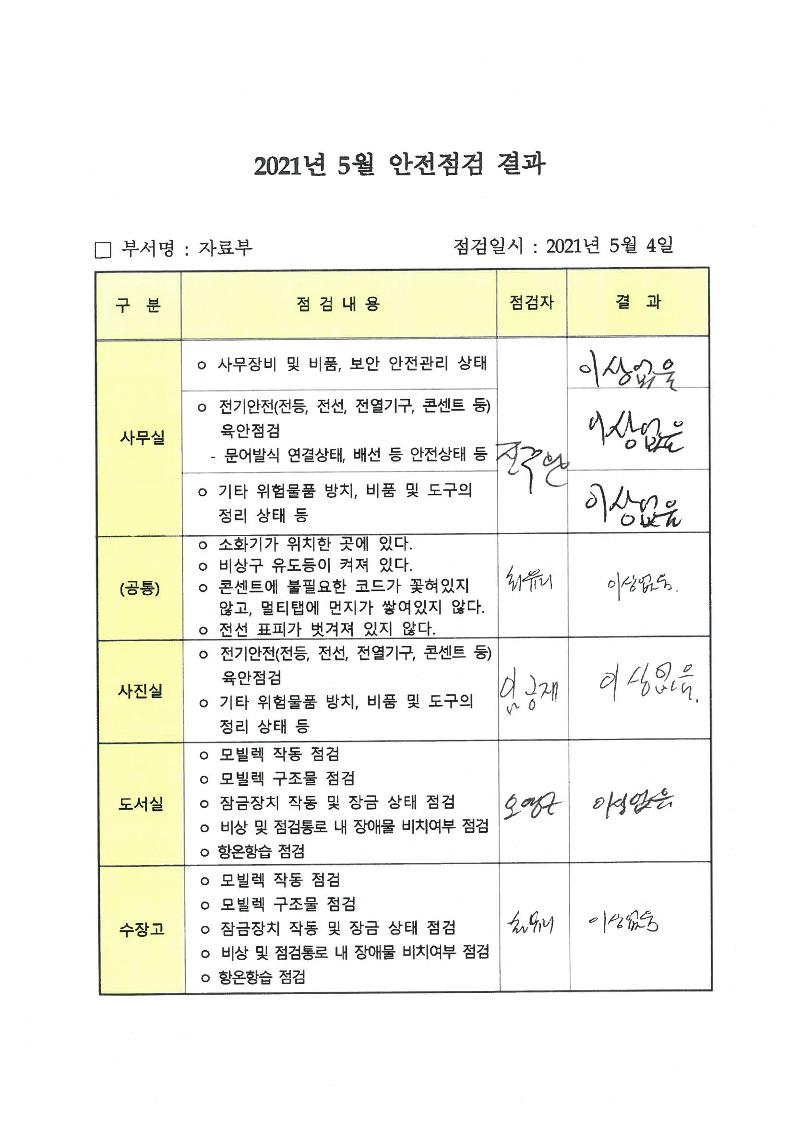 2021년 5월 안전점검 결과
□ 부서명 : 자료부 점검일시 : 2021년 5월 4일
구 분 점 검 내 용 점검자 결 과
사무실
o 사무장비 및 비품, 보안 안전관리 상태 이상없음
o 전기안전(전등, 전선, 전열기구, 콘센트 등)
육안점검
- 문어발식 연결상태, 배선 등 안전상태 등
이상없음
o 기타 위험물품 방치, 비품 및 도구의
정리 상태 등
이상없음
(공통)
o 소화기가 위치한 곳에 있다.
o 비상구 유도등이 켜져 있다.
o 콘센트에 불필요한 코드가 꽃혀있지
않고, 멀티탭에 먼지가 쌓여있지 않다.
o 전선 표피가 벗겨져 있지 않다.
최유리 이상없음.
사진실
o 전기안전(전등, 전선, 전열기구, 콘센트 등)
육안점검
o 기타 위험물품 방치, 비품 및 도구의
정리 상태 등
이상없음.
도서실
o 모빌렉 작동 점검
o 모빌렉 구조물 점검
o 잠금장치 작동 및 장금 상태 점검
o 비상 및 점검통로 내 장애물 비치여부 점검
o 항온항습 점검
이상없음
수장고
o 모빌렉 작동 점검
o 모빌렉 구조물 점검
o 잠금장치 작동 및 장금 상태 점검
o 비상 및 점검통로 내 장애물 비치여부 점검
o 항온항습 점검
최유리 이상없음